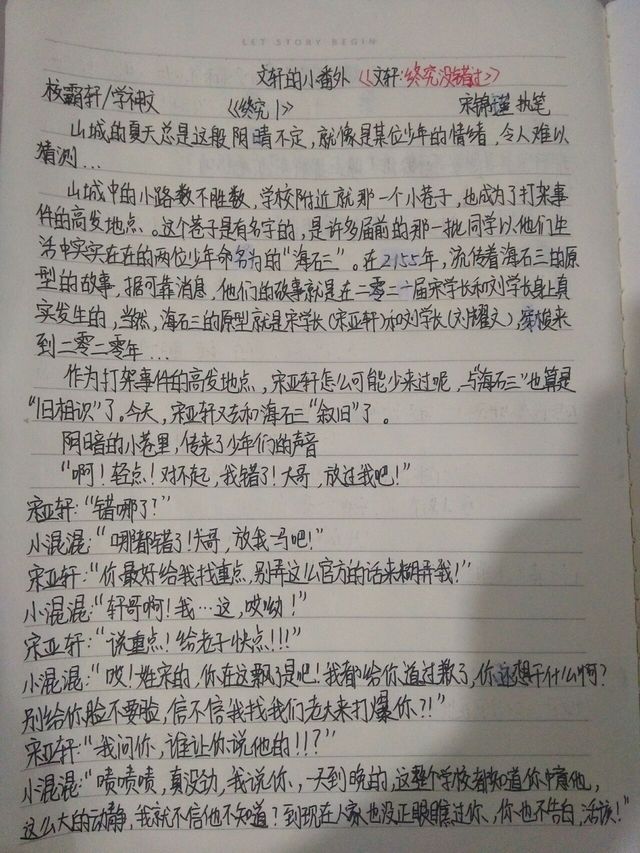 LET STORY BEGIN
文轩的小番外《文轩:终究没错过》
校霸轩/学神文 《终究1》 宋锦瑾 执笔
山城的夏天总是这般阴晴不定,就像是某位少年的情绪,令人难以
猜测...
山城中的小路数不胜数,学校附近就那一个小巷子,也成为了打架事
件的高发地点、。这个巷子是有名字的,是许多届前的那一批同学以他们生
活中实实在在的两位少年命名为的“海石三”。在2155年,流传着海石三的原
型的故事,据可靠消息,他们的故事就是在二零二一届宋学长和刘学长身上真
实发生的,当然,海石三的原型就是宋学长(宋亚轩)和刘学长(刘耀文),来
到二零二零年...
作为打架事件的高发地点,宋亚轩怎么可能少来过呢,与“海石三”也算是
“旧相识”了。今天,宋亚轩又去和海石三“叙旧”了。
阴暗的小巷里,传来了少年们的声音
“啊!轻点!对不起,我错了!大哥,放过我吧!”
宋亚轩:“错哪了?”
小混混:“哪都错了!大哥,放我一马吧!”
宋亚轩:“你最好给我找重点,别弄这么官方的话来糊弄我!”
小混混:“轩哥啊!我…这,哎呦!”
宋亚轩:“说重点!给老子快点!!!”
小混混:“哎!姓宋的,你在这飘了是吧!我都给你道过歉了,你还想干什么啊?
别给你脸不要脸,信不信我找我们老大来打爆你?!”
宋亚轩:“我问你,谁让你说他的!!?”
小混混:“啧啧啧,真没劲,我说你,一天到晚的,这整个学校都知道你中意他,
这么大的动静,我就不信他不知道?到现在人家也没正眼瞧过你、你也不告白,活该!”